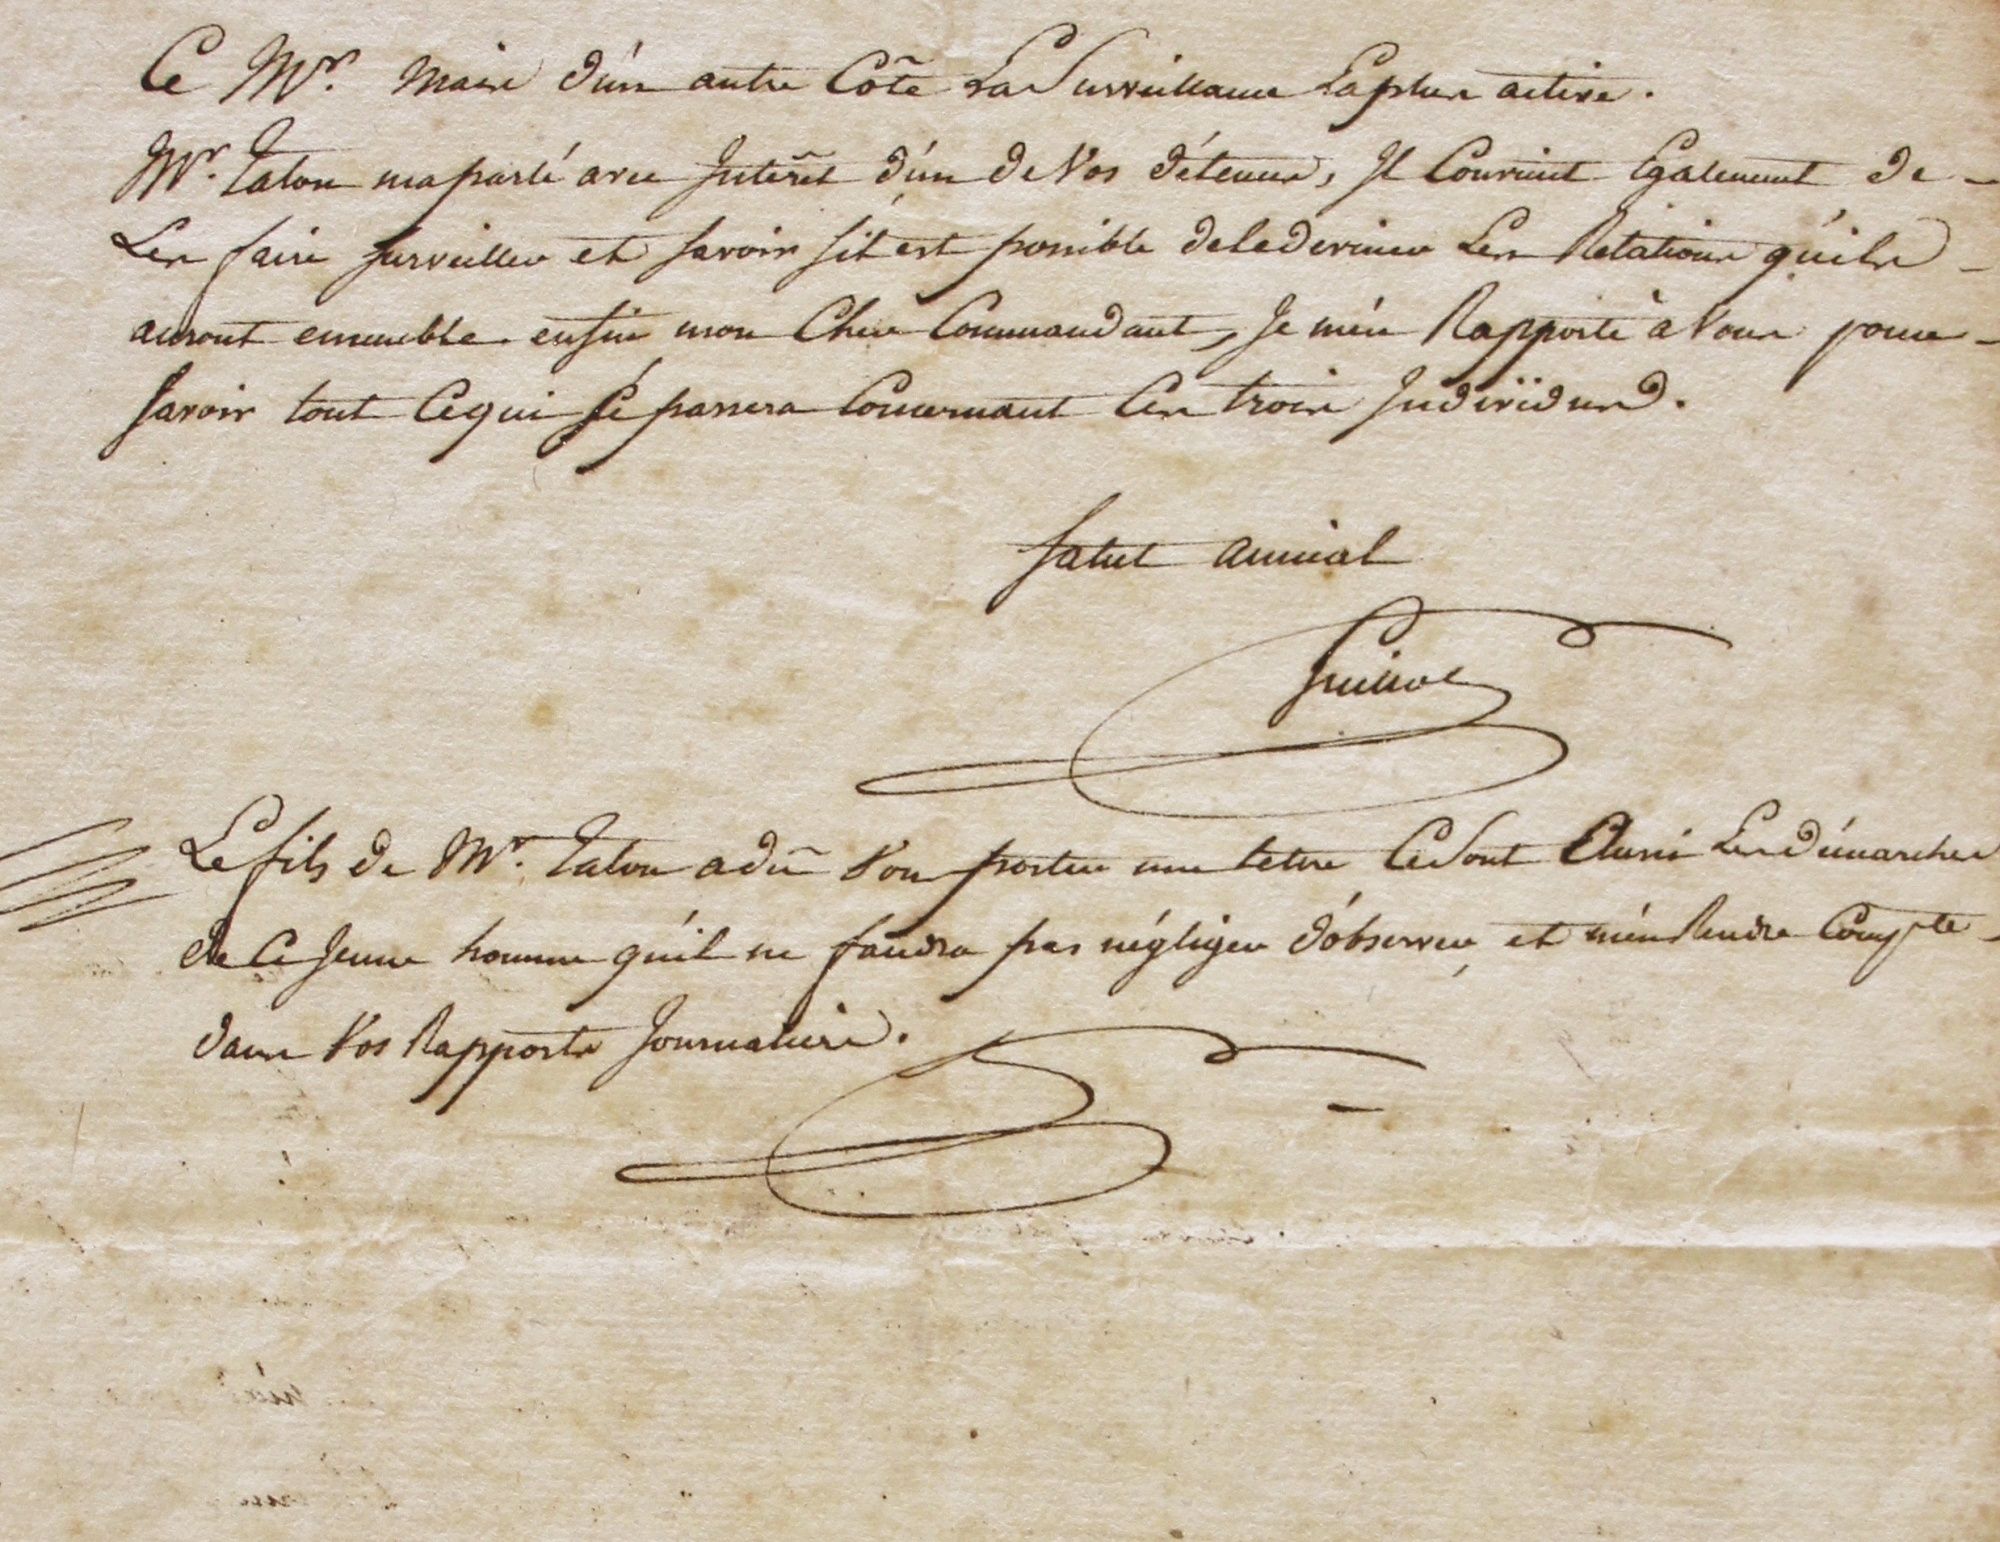 Ce Mr. mais d'un autre Côté La Surveillance La plus active.
Mr. Talon ma parlé avec Intérêt d'un de Vos détenus, Il Convient Egalement de -
Les faire surveiller et savoir s'il est possible de les Relations qu'ils -
auront ensemble. enfin mon Cher Commandant, je m'en Rapporte à Vous pour -
savoir tout Cequi sé passera Concernant Ces trois Individus.
salut amical
Le fils de Mr. Talon a dû Vous porter une lettre Ce Sont Aussi Les démarches
de Ce Jeune homme qu'il ne faudra pas négliger d'observer, et m'en Rendre Compte -
dans Vos Rapports Journaliers.